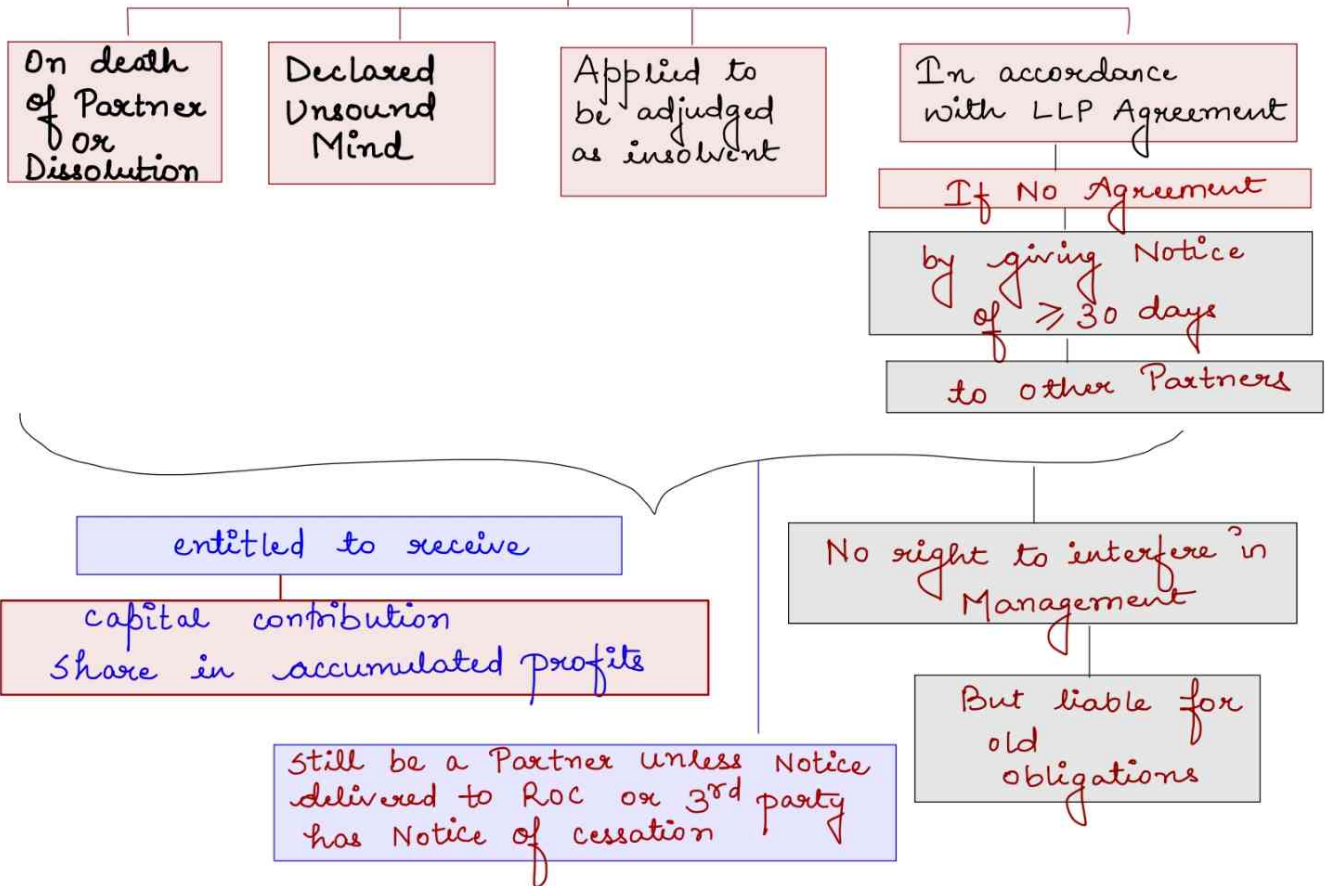 On death
of Partner
or
Dissolution
Declared
Unsound
Mind
Applied to
be adjudged
as insolvent
In accordance
with LLP Agreement
If No Agreement
by giving Notice
of ⩾ 30 days
to other Partners
entitled to receive
capital contribution
share in accumulated profits
No right to interfere in
Management
But liable for
old
obligations
Still be a Partner unless Notice
delivered to ROC or 3rd party
has Notice of cessation